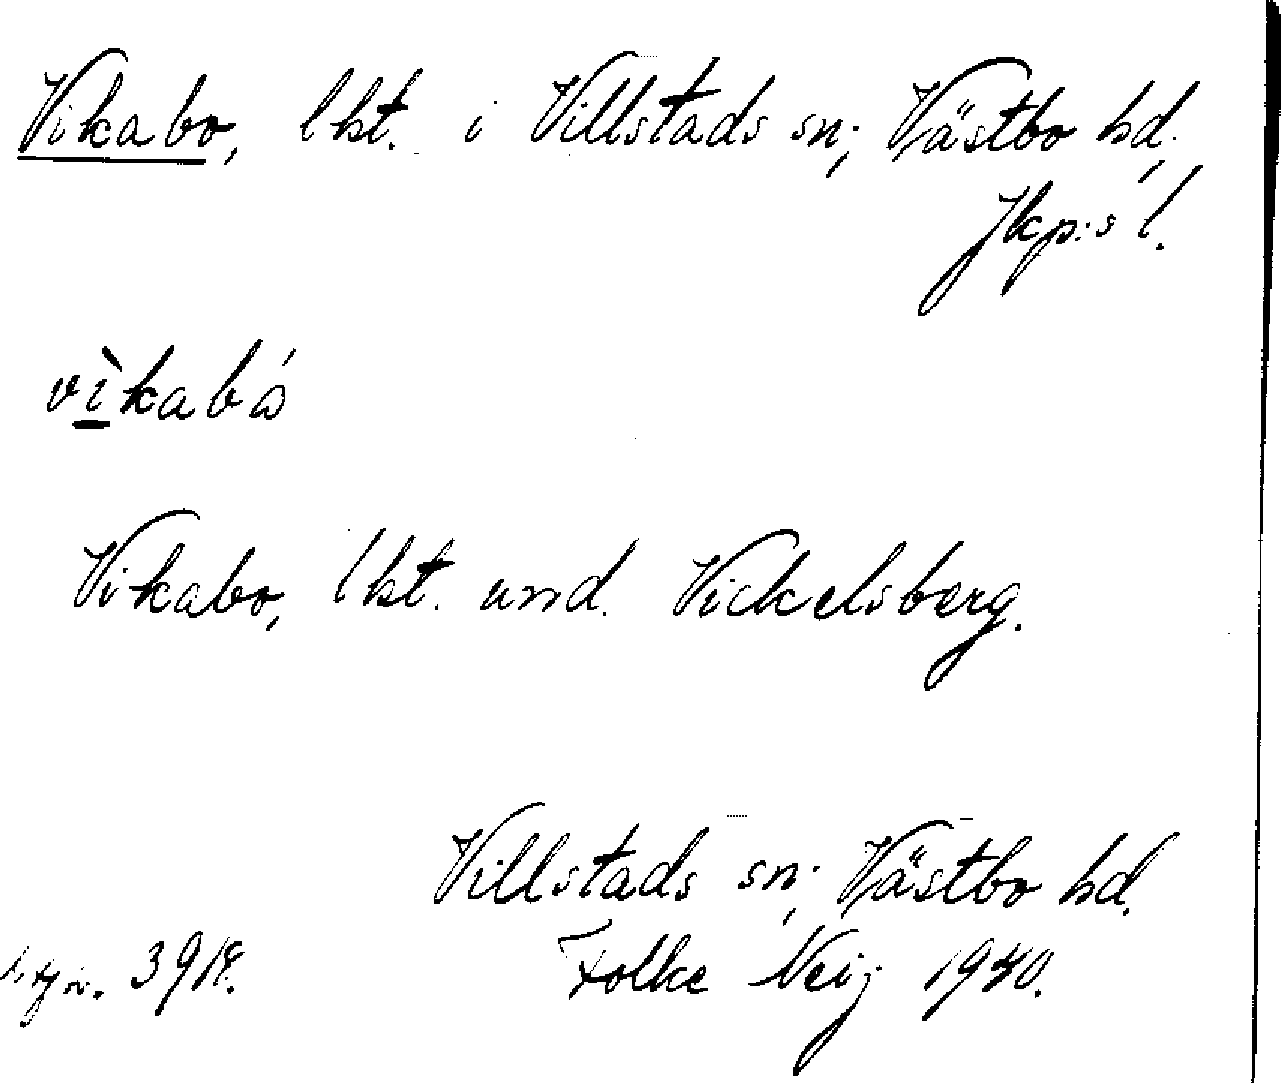 Vikabo, lkt. i Villstads sn; Västbo hd,
Jkp:s l.
vìkabó
Vikabo, lkt. und. Vickelsberg.
Villstads sn; Västbo hd.
3918. Folke Neij 1940.